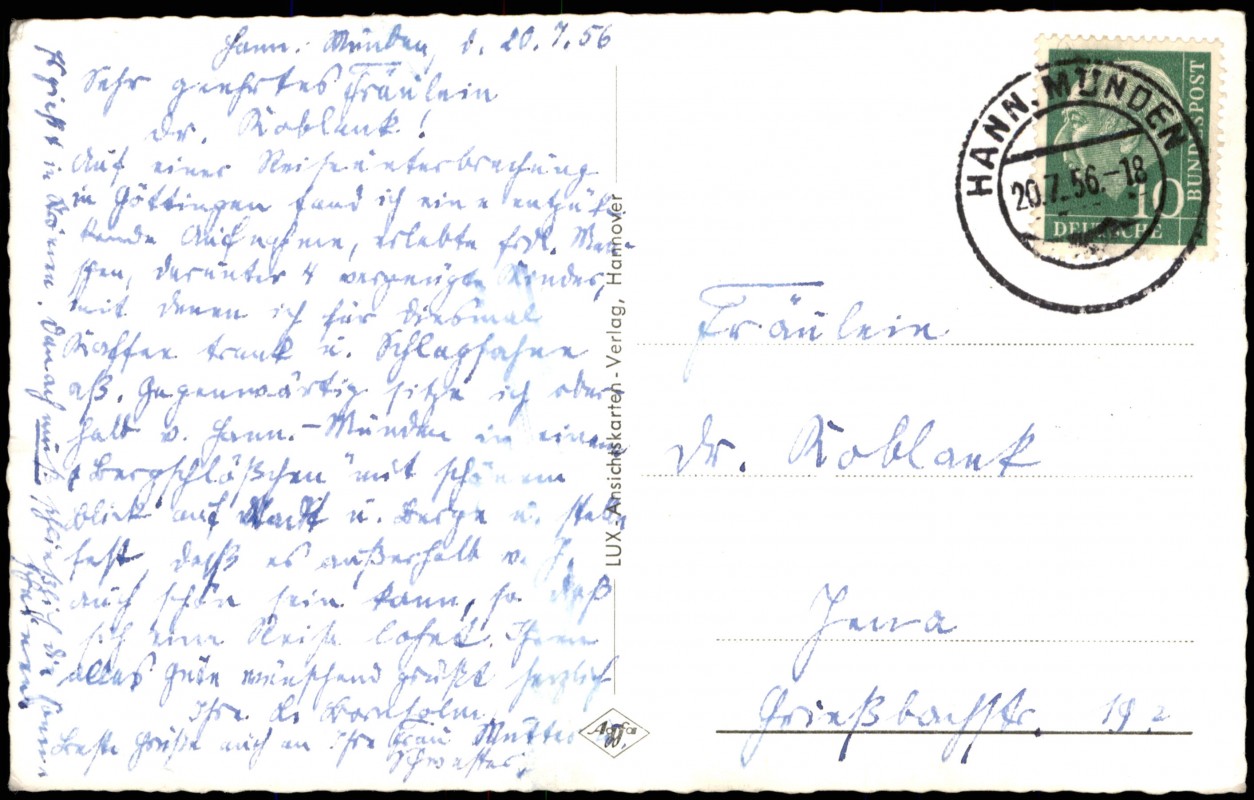 Hann. Münden, d. 20.7.56
Sehr geehrtes Fräulein
Dr. Koblank!
Auf einer Reiseunterbrechung
in Göttingen fand ich eine entzük-
kende Aufnahme, erlebte frdl. Men-
schen, darunter 4 vergnügte Kinder,
mit denen ich für diesmal
Kaffee trank u. Schlagsahne
aß. Gegenwärtig sitze ich ober-
halb v. Hann.-Münden in einem
"Bergschlößchen" mit schönem
Blick auf Stadt u. Berge u. stelle
fest, daß es außerhalb v. J.
auch schön sein kann, so daß
sich eine Reise lohnt. Ihnen
alles Gute wünschend grüßt herzlich
Ihre Bornholm
Beste Grüße auch an Ihre Frau Mutter u.
Schwester,
in Danach muß schließlich die Sonne
scheinen
LUX-Ansichtskarten-Verlag, Hannover
Agfa
HANN. MÜNDEN
20.7.56.-18
10
DEUTSCHE
BUNDESPOST
Fräulein
Dr. Koblank
Jena
Grießbachstr. 19